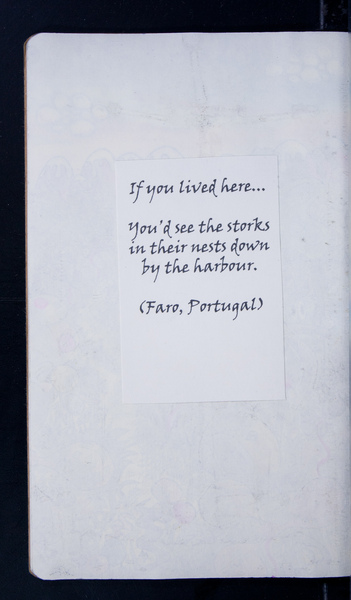 If you lived here...
You'd see the storks
in their nests down
by the harbour.
(Faro, Portugal)